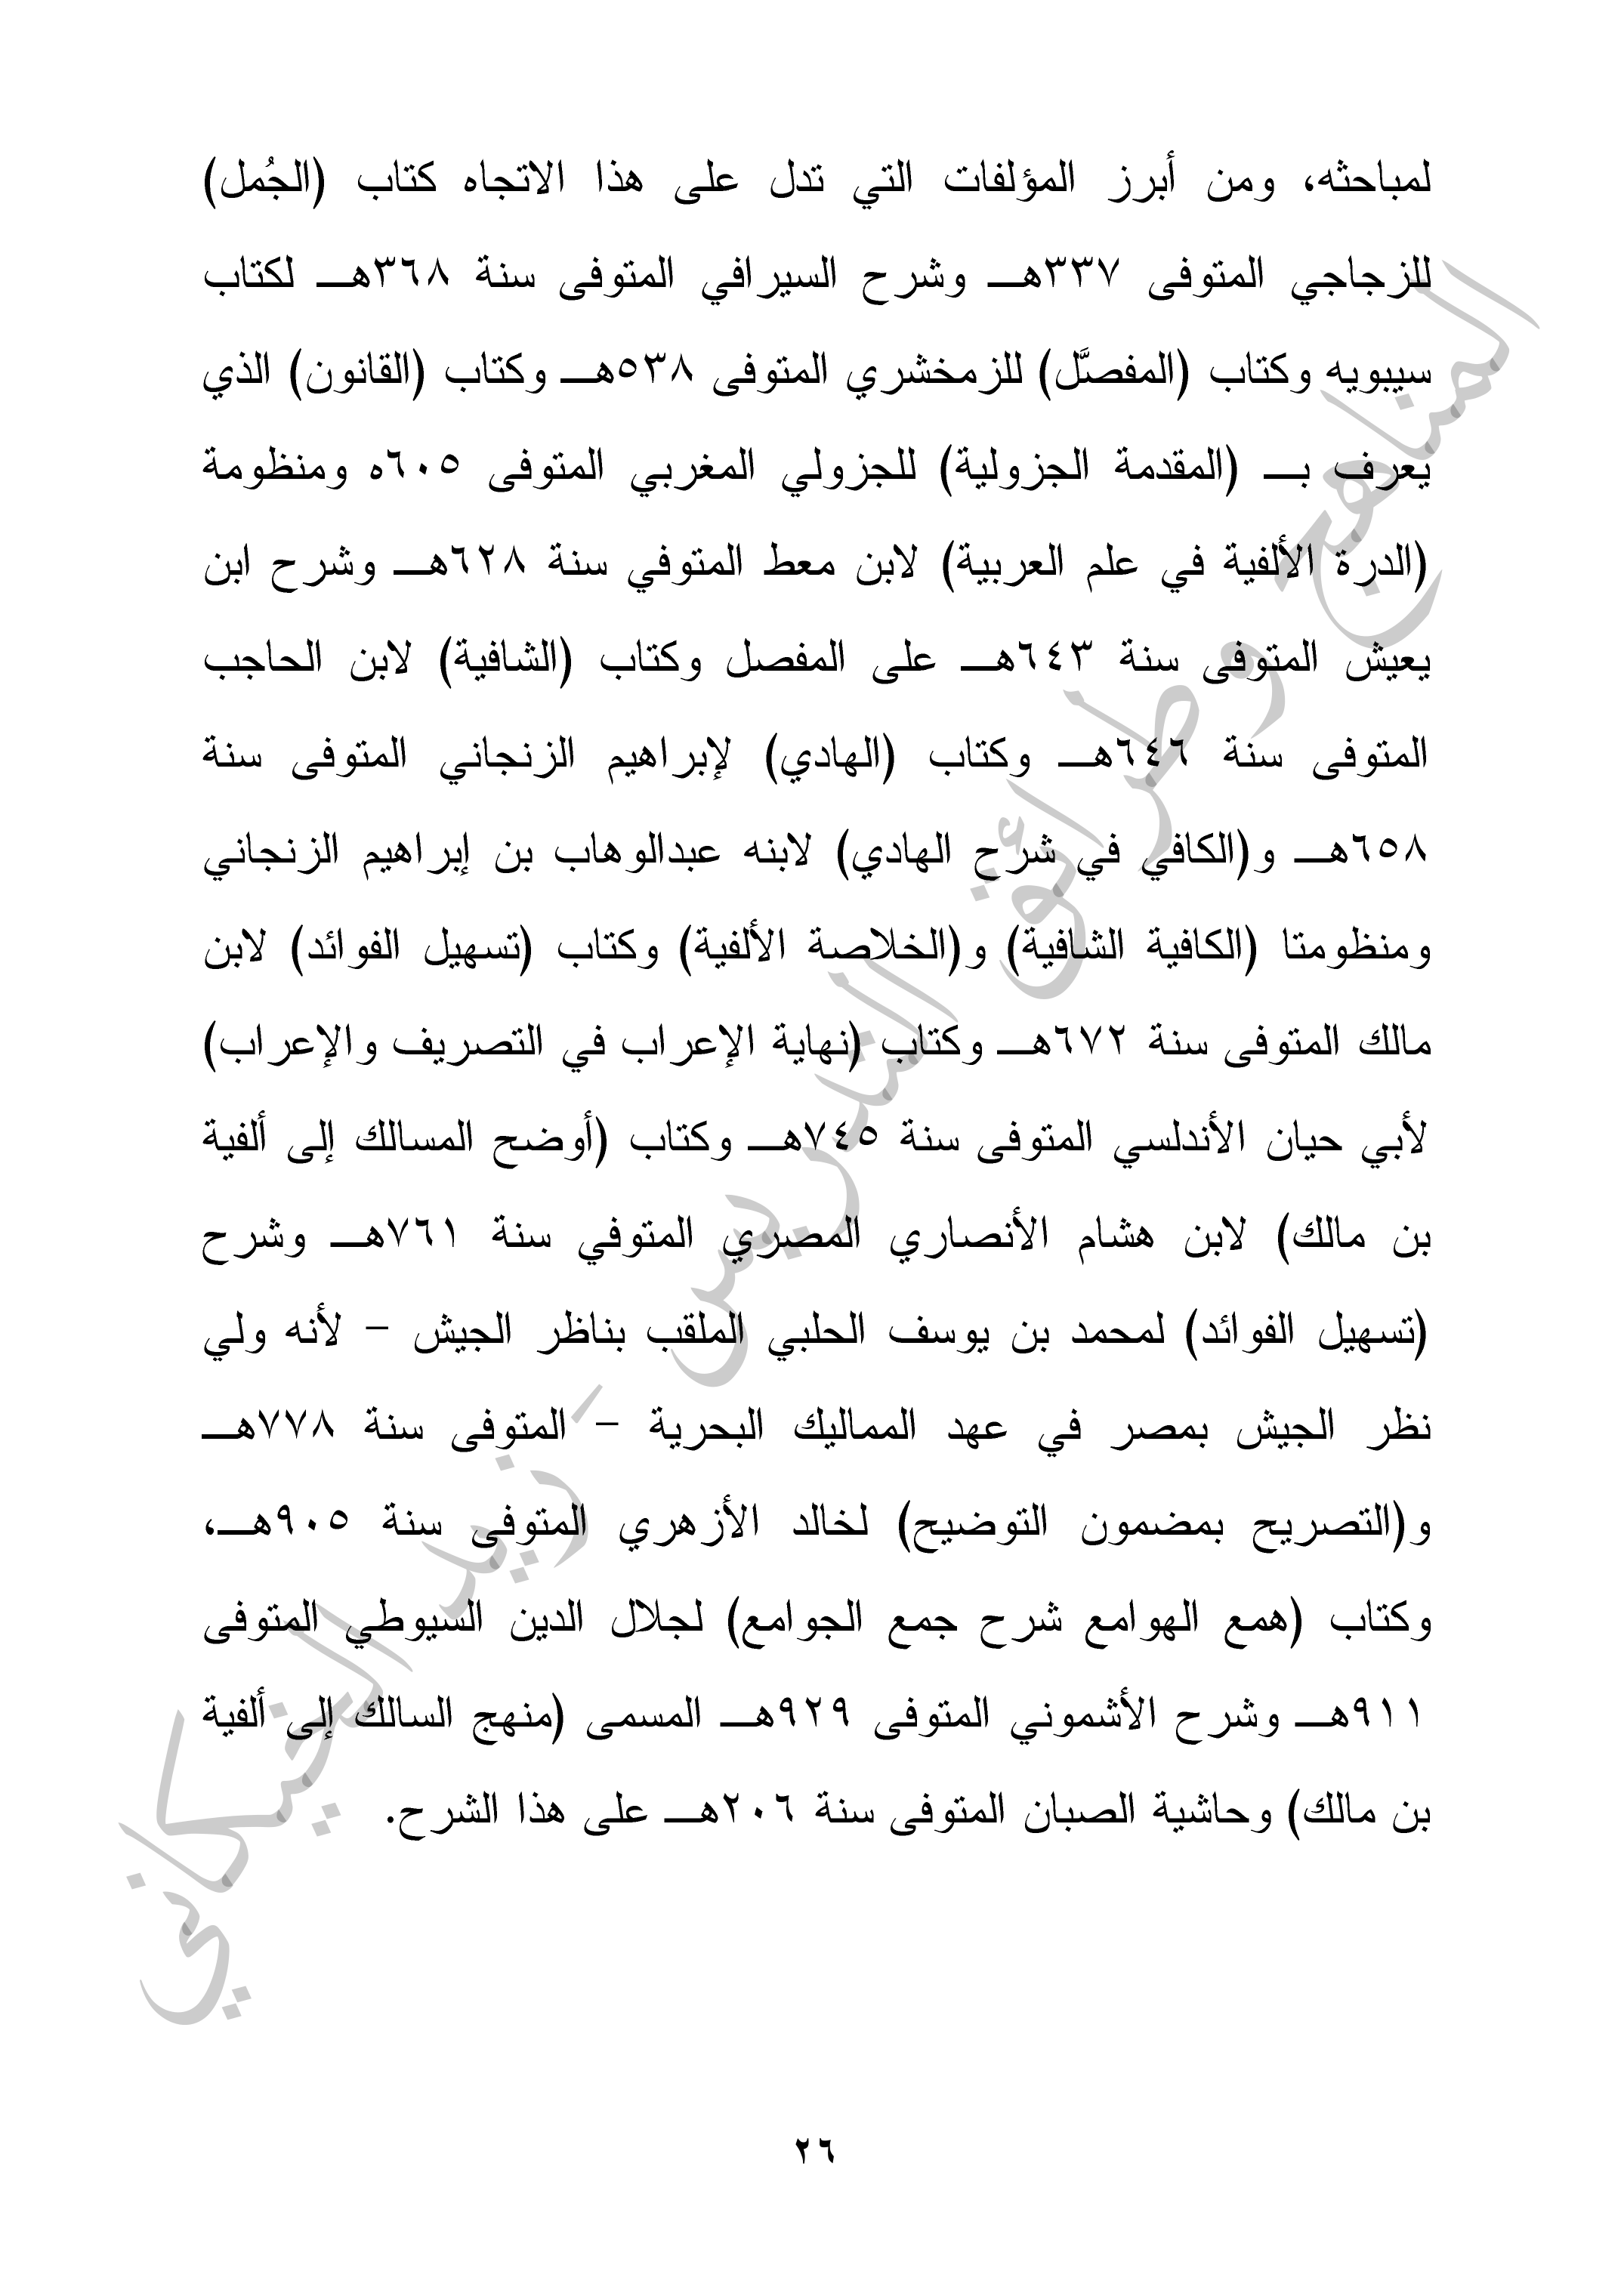 لمباحثه، ومن أبرز المؤلفات التي تدل على هذا الاتجاه كتاب (الجُمل)
للزجاجي المتوفى ٣٣٧هـ وشرح السيرافي المتوفى سنة ٣٦٨هـ لكتاب
سيبويه وكتاب (المفصَّل) للزمخشري المتوفى ٥٣٨هـ وكتاب (القانون) الذي
يعرف بـ (المقدمة الجزولية) للجزولي المغربي المتوفى ٦٠٥ه ومنظومة
(الدرة الألفية في علم العربية) لابن معط المتوفي سنة ٦٢٨هـ وشرح ابن
يعيش المتوفى سنة ٦٤٣هـ على المفصل وكتاب (الشافية) لابن الحاجب
المتوفى سنة ٦٤٦هـ وكتاب (الهادي) لإبراهيم الزنجاني المتوفى سنة
٦٥٨هـ و(الكافي في شرح الهادي) لابنه عبدالوهاب بن إبراهيم الزنجاني
ومنظومتا (الكافية الشافية) و(الخلاصة الألفية) وكتاب (تسهيل الفوائد) لابن
مالك المتوفى سنة ٦٧٢هـ وكتاب (نهاية الإعراب في التصريف والإعراب)
لأبي حيان الأندلسي المتوفى سنة ٧٤٥هـ وكتاب (أوضح المسالك إلى ألفية
بن مالك) لابن هشام الأنصاري المصري المتوفي سنة ٧٦١هـ وشرح
(تسهيل الفوائد) لمحمد بن يوسف الحلبي الملقب بناظر الجيش – لأنه ولي
نظر الجيش بمصر في عهد المماليك البحرية – المتوفى سنة ٧٧٨هـ
و(التصريح بمضمون التوضيح) لخالد الأزهري المتوفى سنة ٩٠٥هـ،
وكتاب (همع الهوامع شرح جمع الجوامع) لجلال الدين السيوطي المتوفى
٩١١هـ وشرح الأشموني المتوفى ٩٢٩هـ المسمى (منهج السالك إلى ألفية
بن مالك) وحاشية الصبان المتوفى سنة ٢٠٦هـ على هذا الشرح.
المناهج وطرائق التدريس - زيد الخيكاني
٢٦